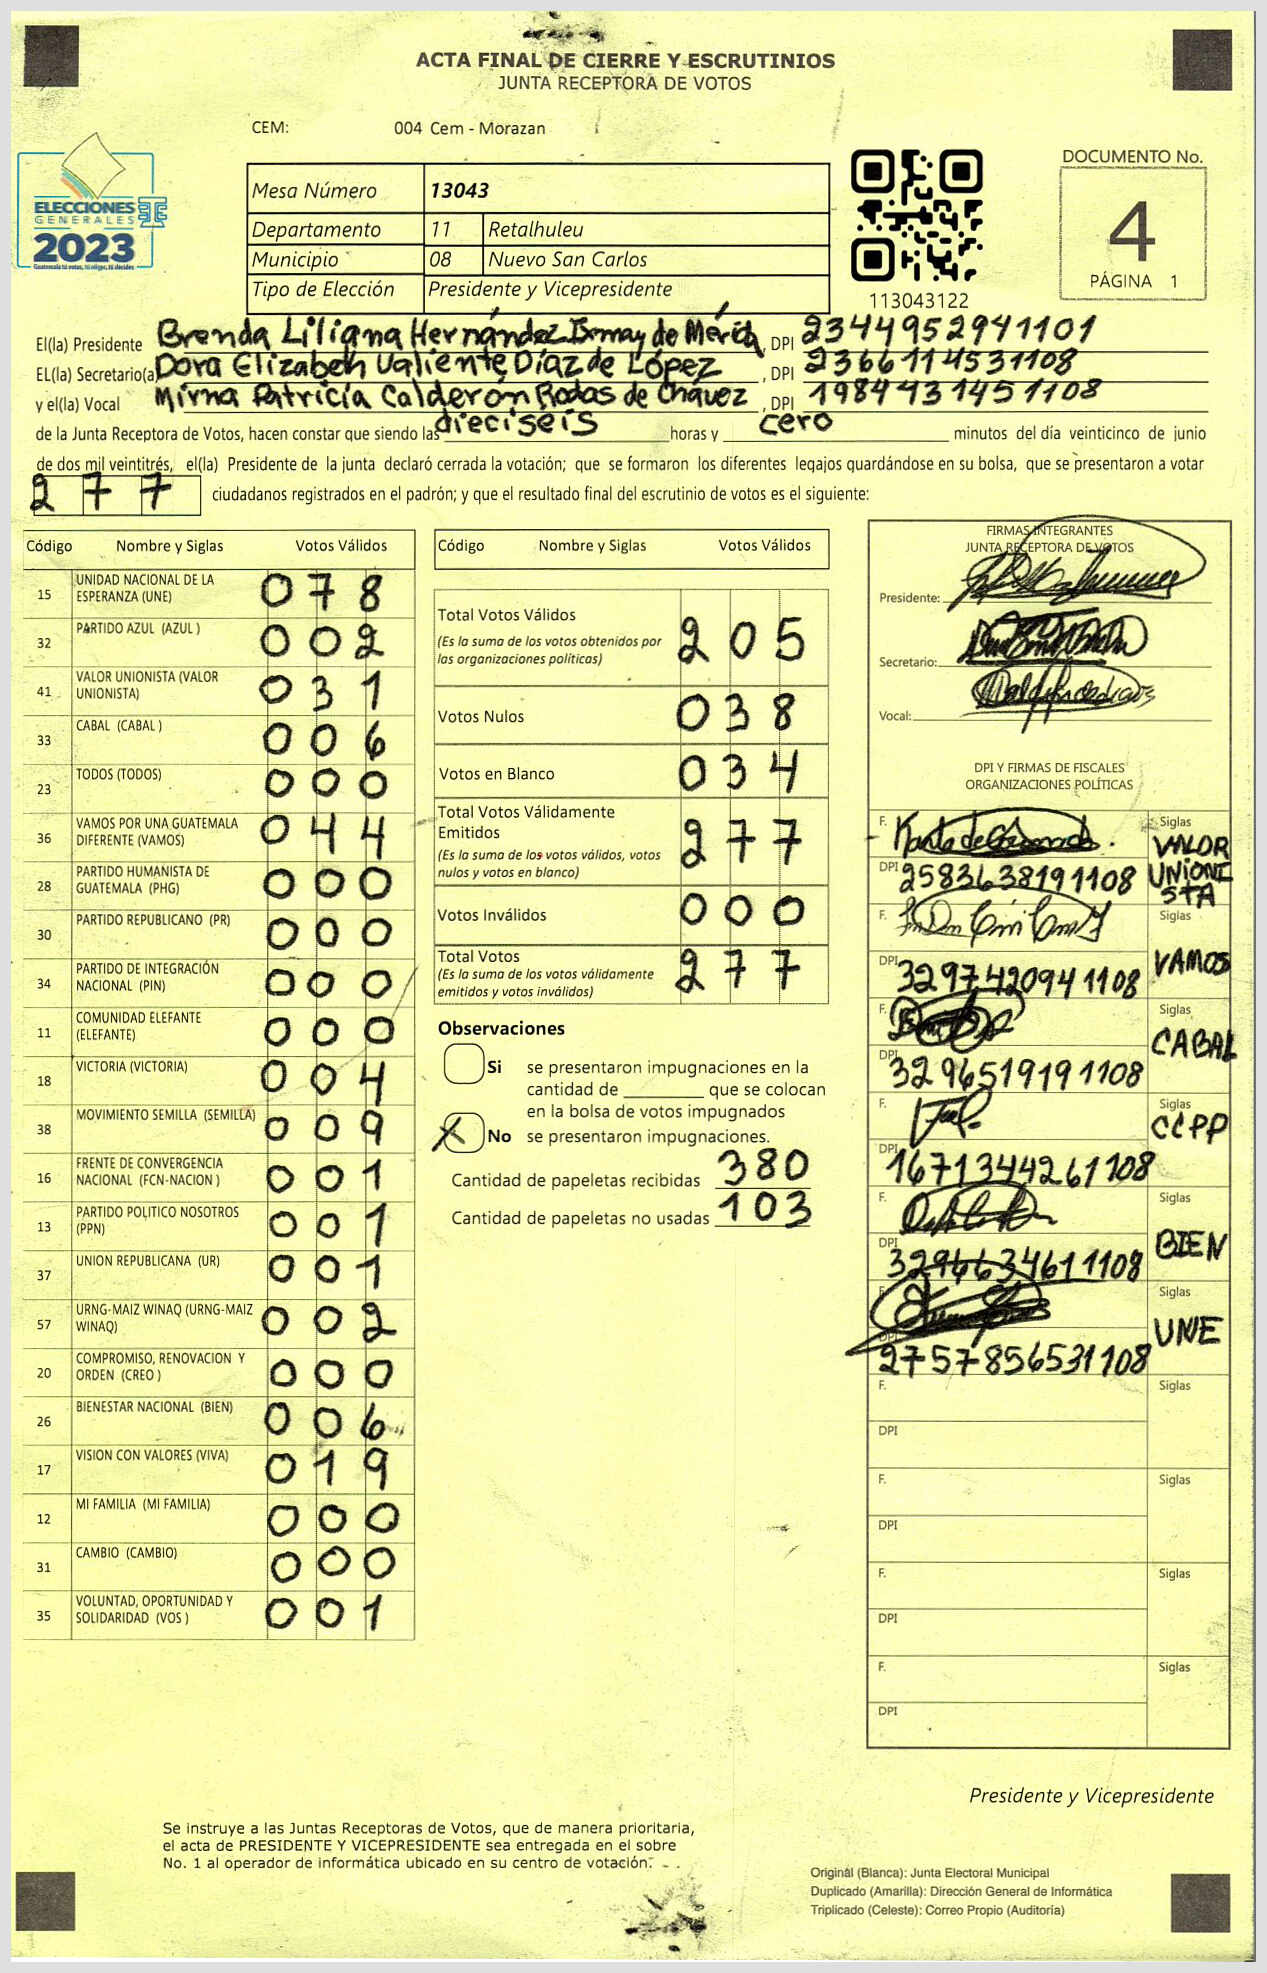 ACTA FINAL DE CIERRE Y ESCRUTINIOS
JUNTA RECEPTORA DE VOTOS
CEM: 004 Cem - Morazan
ELECCIONES
GENERALES
2023
Guatemala tú votas, tú eliges, tú decides
Mesa Número 13043
Departamento 11 Retalhuleu
Municipio 08 Nuevo San Carlos
Tipo de Elección Presidente y Vicepresidente
113043122
DOCUMENTO No.
4
PÁGINA 1
El(la) Presidente Brenda Liliana Hernández Ixmay de Mérida, DPI 2344952941101
EL(la) Secretario(a) Dora Elizabeh Valiente Díaz de López, DPI 2366114531108
y el(la) Vocal Mirna Patricia Calderón Rodas de Chávez, DPI 1984431451108
de la Junta Receptora de Votos, hacen constar que siendo las dieciseis horas y cero minutos del día veinticinco de junio
de dos mil veintitrés, el(la) Presidente de la junta declaró cerrada la votación; que se formaron los diferentes legajos quardándose en su bolsa, que se presentaron a votar
277 ciudadanos registrados en el padrón; y que el resultado final del escrutinio de votos es el siguiente:
Código Nombre y Siglas Votos Válidos
15 UNIDAD NACIONAL DE LA ESPERANZA (UNE) 078
32 PARTIDO AZUL (AZUL ) 002
41 VALOR UNIONISTA (VALOR UNIONISTA) 031
33 CABAL (CABAL ) 006
23 TODOS (TODOS) 000
36 VAMOS POR UNA GUATEMALA DIFERENTE (VAMOS) 044
28 PARTIDO HUMANISTA DE GUATEMALA (PHG) 000
30 PARTIDO REPUBLICANO (PR) 000
34 PARTIDO DE INTEGRACIÓN NACIONAL (PIN) 000
11 COMUNIDAD ELEFANTE (ELEFANTE) 000
18 VICTORIA (VICTORIA) 004
38 MOVIMIENTO SEMILLA (SEMILLA) 009
16 FRENTE DE CONVERGENCIA NACIONAL (FCN-NACION ) 001
13 PARTIDO POLITICO NOSOTROS (PPN) 001
37 UNION REPUBLICANA (UR) 001
57 URNG-MAIZ WINAQ (URNG-MAIZ WINAQ) 002
20 COMPROMISO, RENOVACION Y ORDEN (CREO ) 000
26 BIENESTAR NACIONAL (BIEN) 006
17 VISION CON VALORES (VIVA) 019
12 MI FAMILIA (MI FAMILIA) 000
31 CAMBIO (CAMBIO) 000
35 VOLUNTAD, OPORTUNIDAD Y SOLIDARIDAD (VOS ) 001
Código Nombre y Siglas Votos Válidos
Total Votos Válidos 205
(Es la suma de los votos obtenidos por
las organizaciones políticas)
Votos Nulos 038
Votos en Blanco 034
Total Votos Válidamente
Emitidos 277
(Es la suma de los votos válidos, votos
nulos y votos en blanco)
Votos Inválidos 000
Total Votos 277
(Es la suma de los votos válidamente
emitidos y votos inválidos)
Observaciones
Si se presentaron impugnaciones en la
cantidad de ________ que se colocan
en la bolsa de votos impugnados
X No se presentaron impugnaciones.
Cantidad de papeletas recibidas 380
Cantidad de papeletas no usadas 103
FIRMAS INTEGRANTES
JUNTA RECEPTORA DE VOTOS
Presidente:
Secretario:
Vocal:
DPI Y FIRMAS DE FISCALES
ORGANIZACIONES POLÍTICAS
F. Siglas VALOR UNIONISTA
DPI 2583638191108
F. Siglas VAMOS
DPI 3297420941108
F. Siglas CABAL
DPI 3296519191108
F. Siglas CCPP
DPI 1671344261108
F. Siglas BIEN
DPI 3296634611108
F. Siglas UNE
DPI 2757856531108
F. Siglas
DPI
F. Siglas
DPI
F. Siglas
DPI
F. Siglas
DPI
Presidente y Vicepresidente
Se instruye a las Juntas Receptoras de Votos, que de manera prioritaria,
el acta de PRESIDENTE Y VICEPRESIDENTE sea entregada en el sobre
No. 1 al operador de informática ubicado en su centro de votación.
Original (Blanca): Junta Electoral Municipal
Duplicado (Amarilla): Dirección General de Informática
Triplicado (Celeste): Correo Propio (Auditoría)